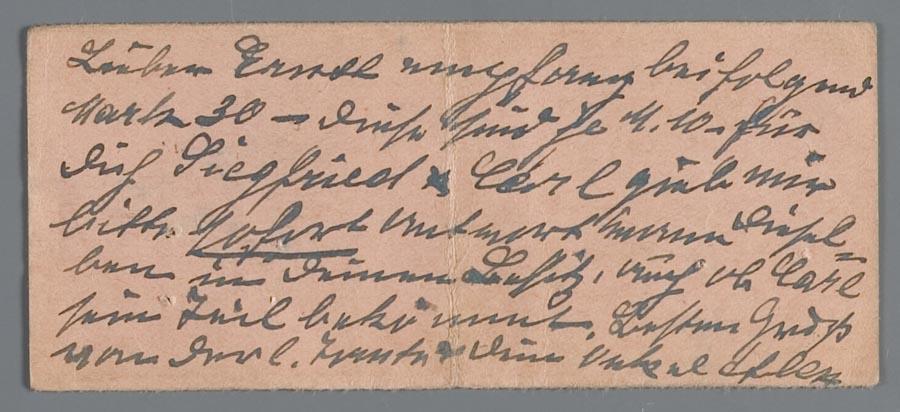 Lieber Ernst empfang beifolgend
Mark 30 – diese sind je M. 10 – für
Dich Siegfried & Carl gieb mir
bitte sofort Antwort wann diesel=
ben in Deinem Besitz, auch ob Carl
sein Teil bekömmt. Besten Gruß
von der l. Tante & Dein Onkel